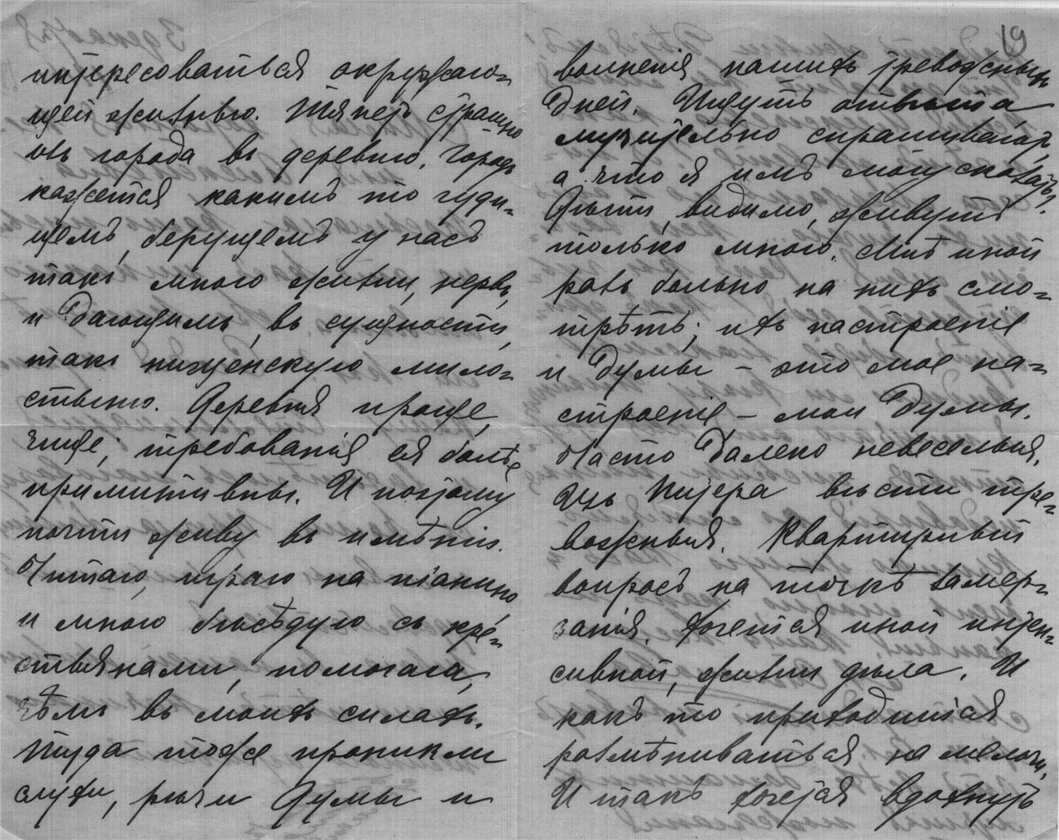 интересоваться окружаю-
щей жизнью. Тянетъ страшно
изъ города въ деревню. Городъ
кажется какимъ то чуди-
щемъ, берущемъ у насъ
такъ много жизни, нервъ,
и дающимъ, въ сущности,
такъ нищенскую мило-
стыню. Деревня проще,
чище; требованія ея болѣе
примитивны. И потому
почти живу въ имѣніи.
Читаю, играю на піанино
и много бесѣдую съ кре-
стьянами, помогая,
чѣмъ въ моихъ силахъ.
Туда тоже проникли
слухи, рѣчи Думы и
19
волненія нашихъ тревожныхъ
дней. Ищутъ отвѣта
мучительно спрашиваютъ,
а что я имъ могу сказать?
Дѣти, видимо, живутъ
только мною. Мнѣ иной
разъ больно на нихъ смо-
трѣть; ихъ настроеніе
и думы – это мое на-
строеніе – мои думы.
Часто далеко невеселыя.
Изъ Питера вѣсти тре-
вожныя. Квартирный
вопросъ на точкѣ замер-
занія. Хочется иной интен-
сивной, жизни дѣла. И
какъ то приходится
размѣниваться на мелочи.
И такъ хочется вдохнуть